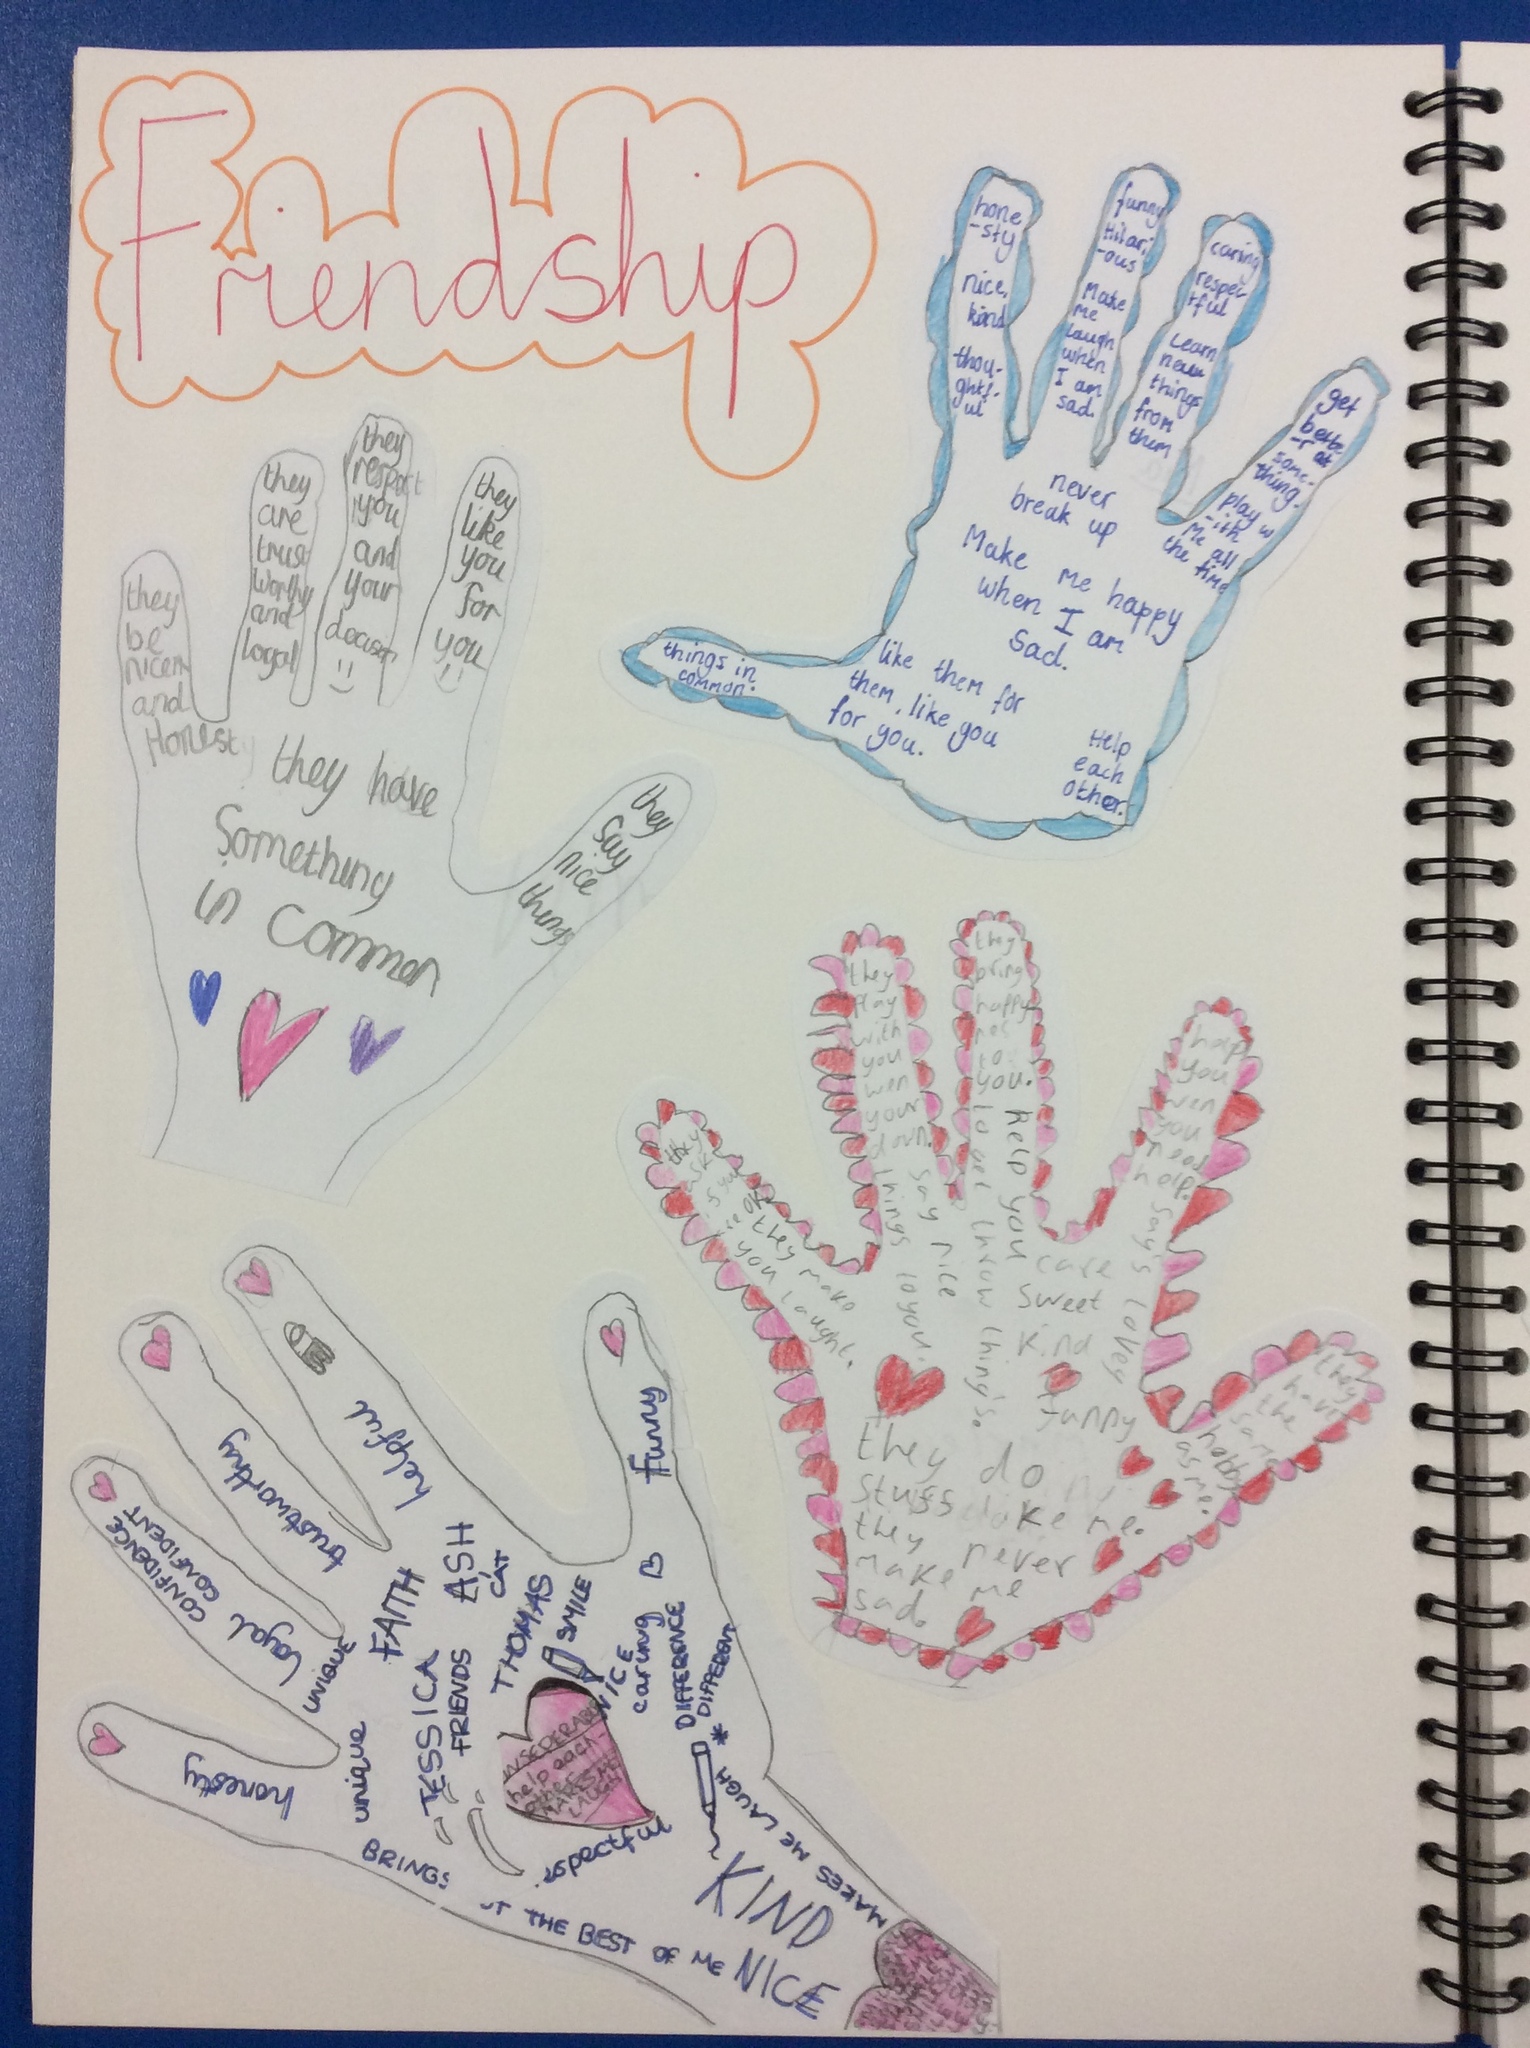 Friendship
hone
-sty
nice,
kind
thou-
ghtf-
ul
funny
Hilari
-ous
Make
me
laugh
when
I am
sad.
caring
respec
tful
Learn
new
things
from
them
get
bette
-r at
some-
thing.
play w
-ith
Me all
the time
never
break up
Make me happy
when I am
sad.
things in
common.
like them for
them, like you
for you.
Help
each
other.
they
be
nicer
and
Honesty
they
are
trust
worthy
and
loyal
they
respect
you
and
your
they
like
you
for
you
they have
Something
in Common
they
say
nice
things
they
ask
they make
you laught.
they
play
with
you
wen
your
down.
say nice
things toyou.
they
bring
happy
nes
to
you.
Help you
throw thing's.
help
you
wen
you
need
help.
Say's lovey
care
Sweet
Kind
funny
they
have
the
same
hobby
as me.
they do
stuff like me.
they never
make me
sad.
helpful
trustworthy
CONFIDENCE
CONFIDENT
Loyal
honesty
Funny
unique
unique
FAITH
JESSICA
FRIENDS
ASH
CAT
THOMAS
SMILE
NICE
caring
DIFFERENCE
DIFFERENT
help each
MAKES ME
LAUGH
MAKES ME LAUGH *
BRINGS
THE BEST OF ME
KIND
NICE